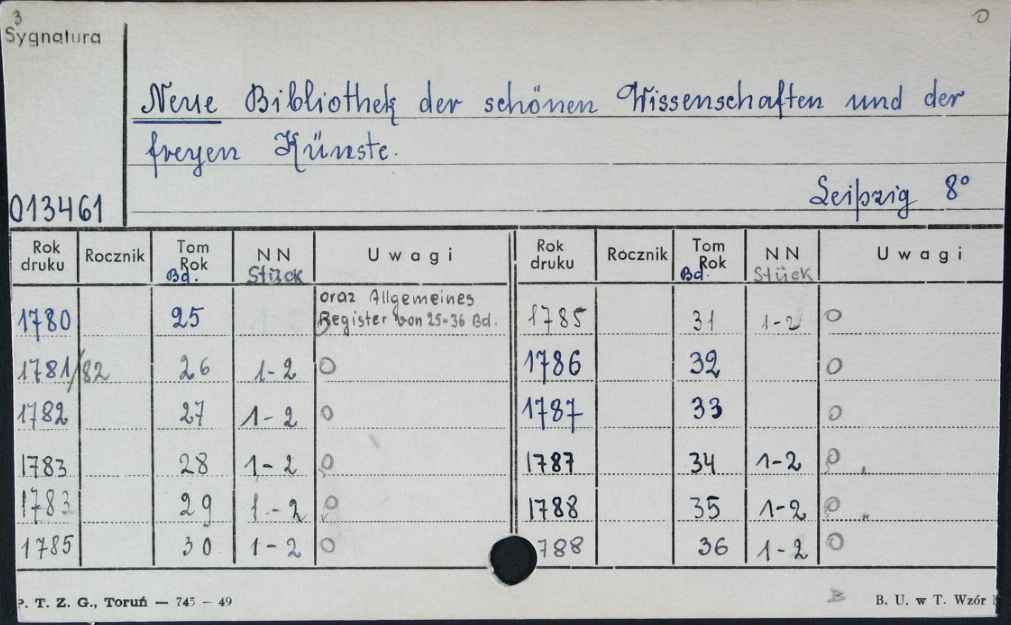 3
Sygnatura
0
Neue Bibliothek der schönen Wissenschaften und der
freyen Künste.
Leipzig 8°
013461
Rok druku Rocznik Tom Rok Bd. NN Stück Uwagi Rok druku Rocznik Tom Rok Bd. NN Stück Uwagi
1780 25 oraz Allgemeines Register von 25-36 Bd. 1785 31 1-2 0
1781/82 26 1-2 0 1786 32 0
1782 27 1-2 0 1787 33 0
1783 28 1-2 0 1787 34 1-2 0
1783 29 1-2 0 1788 35 1-2 0 "
1785 30 1-2 0 788 36 1-2 0
P. T. Z. G., Toruń — 745 – 49 B B. U. w T. Wzór